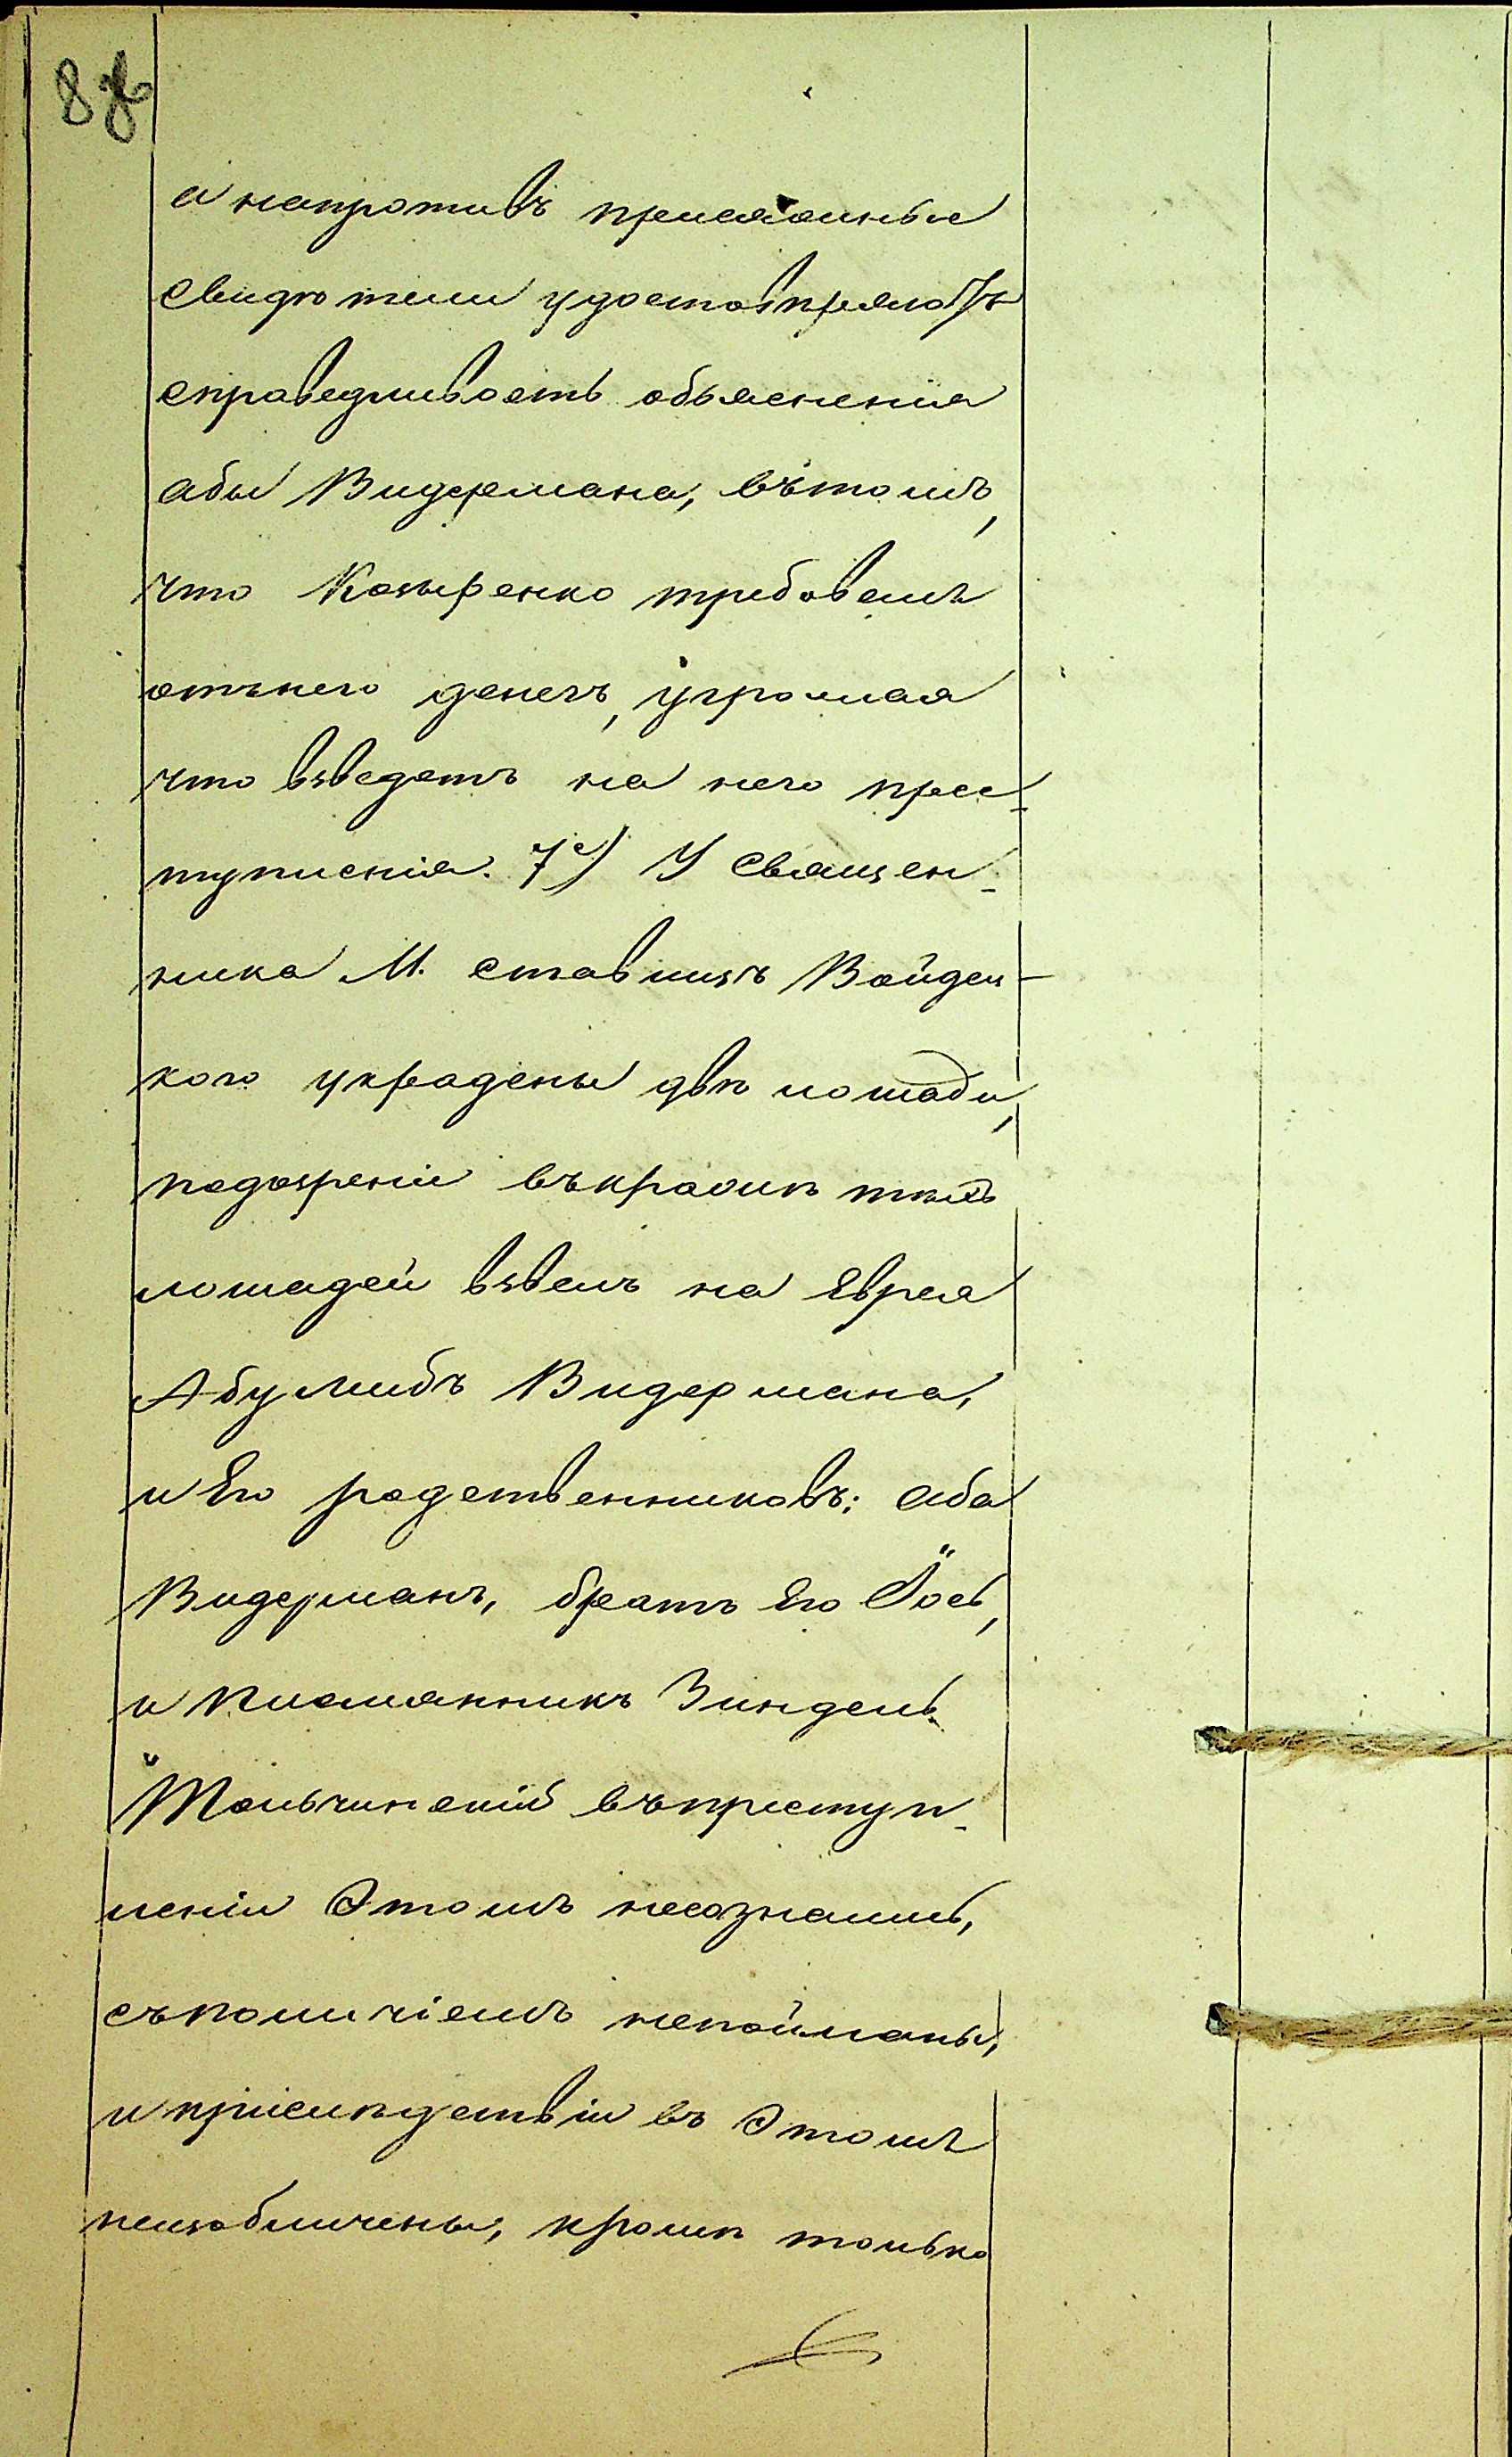 а напротивъ присяжные
свидѣтели удостовѣряютъ
справедливость объясненія
абы Видермана, вътомъ,
что Козыренко требовалъ
отънего денегъ, угрожая
что взведетъ на него прес-
тупленія. 7е) У Священ-
ника М. ставищъ Войдец-
кого украдены двѣ лошади,
подозреніи въкражѣ тѣхъ
лошадей взвелъ на Еврея
Абу Либъ Видермана,
и Его родственниковъ: аба
Видерманъ, братъ Его Іось,
и племянникъ Зиндель
Тальчинскій въпреступ-
леніи Этомъ несознались,
съполичіемъ непойманы,
и прислѣдствіи въ Этомъ
неизобличены, кромѣ только